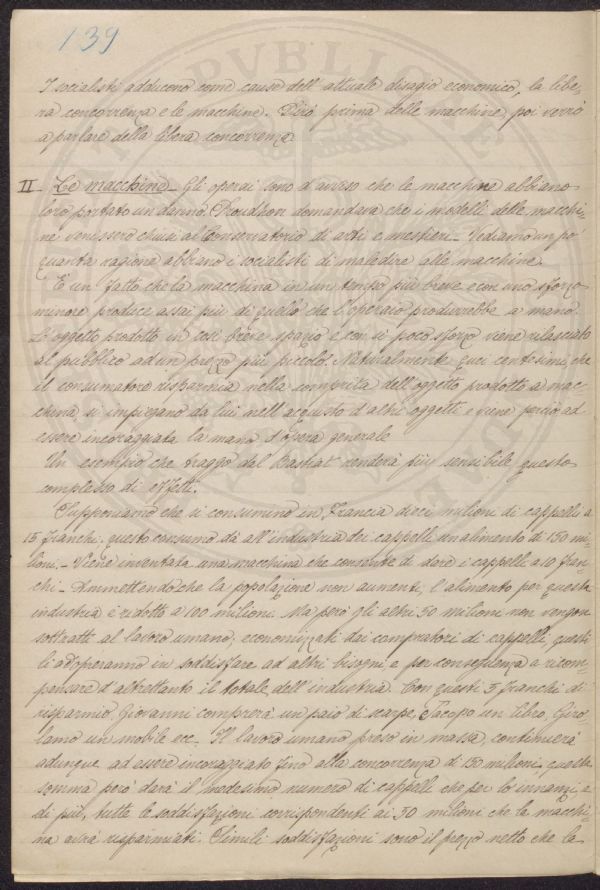 139
I socialisti adducono come cause dell'attuale disagio economico, la libe-
ra concorrenza e le macchine. Dirò prima delle macchine, poi verrò
a parlare della libera concorrenza.
II_ Le macchine_ Gli operai sono d'avviso che le macchine abbiano
loro portato un danno. Proudhon domandava che i modelli delle macchi-
ne venissero chiusi al Conservatorio di arti e mestieri_ Vediamo un po'
quanta ragione abbiano i socialisti di maledire alle macchine.
È un fatto che la macchina in un tempo più breve e con uno sforzo
minore produce assai più di quello che l'operaio produrrebbe a mano.
L'oggetto prodotto in così breve spazio e con sì poco sforzo viene rilasciato
al pubblico ad un prezzo più piccolo. Naturalmente quei centesimi che
il consumatore risparmia nella comprita dell'oggetto prodotto a mac-
china si impiegano da lui nell'acquisto d'altri oggetti e viene perciò ad
essere incoraggiata la mano d'opera generale
Un esempio che traggo dal Bastiat renderà più sensibile questo
complesso di effetti.
Supponiamo che si consumino in Francia dieci milioni di cappelli a
15 franchi: questo consumo dà all'industria dei cappelli un alimento di 150 mi-
lioni._ Viene inventata una macchina che consente di dare i cappelli a 10 fran-
chi_ Ammettendo che la popolazione non aumenti, l'alimento per questa
industria è ridotto a 100 milioni. Ma però gli altri 50 milioni non vengon
sottratti al lavoro umano; economizzati dai compratori di cappelli, questi
li adoperanno in soddisfare ad altri bisogni e per conseguenza a ricom-
pensare d'altrettanto il totale dell'industria. Con questi 5 franchi di
risparmio, Giovanni comprerà un paio di scarpe, Jacopo un libro, Giro-
lamo un mobile ecc._ Il lavoro umano preso in massa, continuerà
adunque ad essere incoraggiato fino alla concorrenza di 150 milioni; questa
somma però darà il medesimo numero di cappelli che per lo innanzi, e
di più, tutte le soddisfazioni corrispondenti ai 50 milioni che la macchi-
na avrà risparmiati. Simili soddisfazioni sono il prezzo netto che la